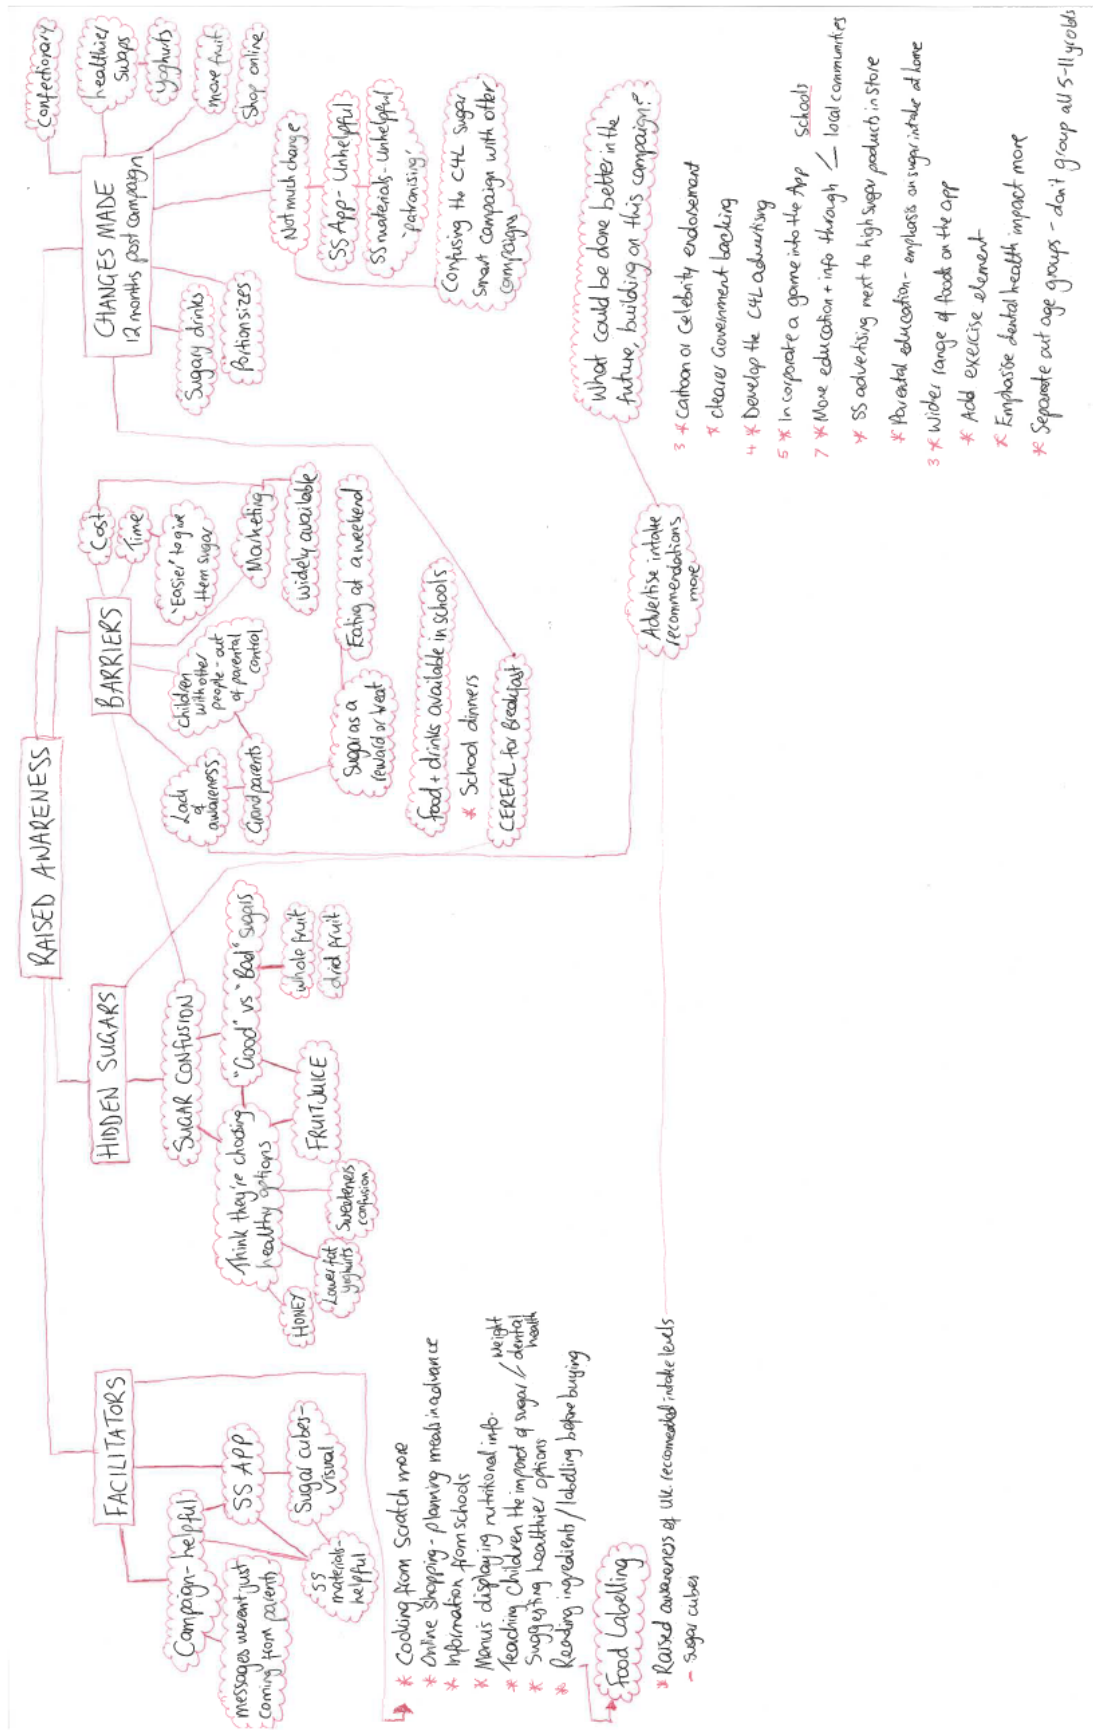 RAISED AWARENESS
FACILITATORS
Campaign - helpful
messages werent just
coming from parents
SS APP
Sugar cubes -
visual
SS
materials -
helpful
* Cooking from Scratch more
* Online Shopping - planning meals in advance
* Information from schools
* Menus displaying nutritional info.
* Teaching Children the impact of sugar / weight
dental
health
* Suggesting healthier options
* Reading ingredients / labelling before buying
Food Labelling
* Raised awareness of UK recomended intake levels
- sugar cubes
HIDDEN SUGARS
SUGAR CONFUSION
Think they're choosing
healthy options
"Good" vs "Bad" sugars
whole fruit
dried fruit
HONEY
Lower fat
yoghurts
Sweeteners
confusion
FRUIT JUICE
BARRIERS
Cost
Time
'Easier' to give
them sugar
Marketing
widely available
Children
with other
people - out
of parental
control
Lack
of
awareness
Grandparents
Sugar as a
reward or treat
Eating at a weekend
food + drinks available in schools
* School dinners
CEREAL for Breakfast
CHANGES MADE
12 months post campaign
Confectionary
healthier
swaps
yoghurts
more fruit
Shop online
Sugary drinks
Portion sizes
Not much change
SS App - Unhelpful
SS materials - Unhelpful
'patronising'
Confusing the C4L Sugar
Smart campaign with other
campaigns
Advertise intake
recommendations
more
What could be done better in the
future, building on this campaign?
3 * Cartoon or Celebrity endorsement
* clearer Government backing
4 * Develop the C4L advertising
5 * Incorporate a game into the App
7 * More education + info through < Schools
local communities
* SS advertising next to high sugar products in store
* Parental education - emphasis on sugar intake at home
3 * Wider range of foods on the app
* Add exercise element
* Emphasise dental health impact more
* Separate out age groups - don't group all 5-11 yr olds